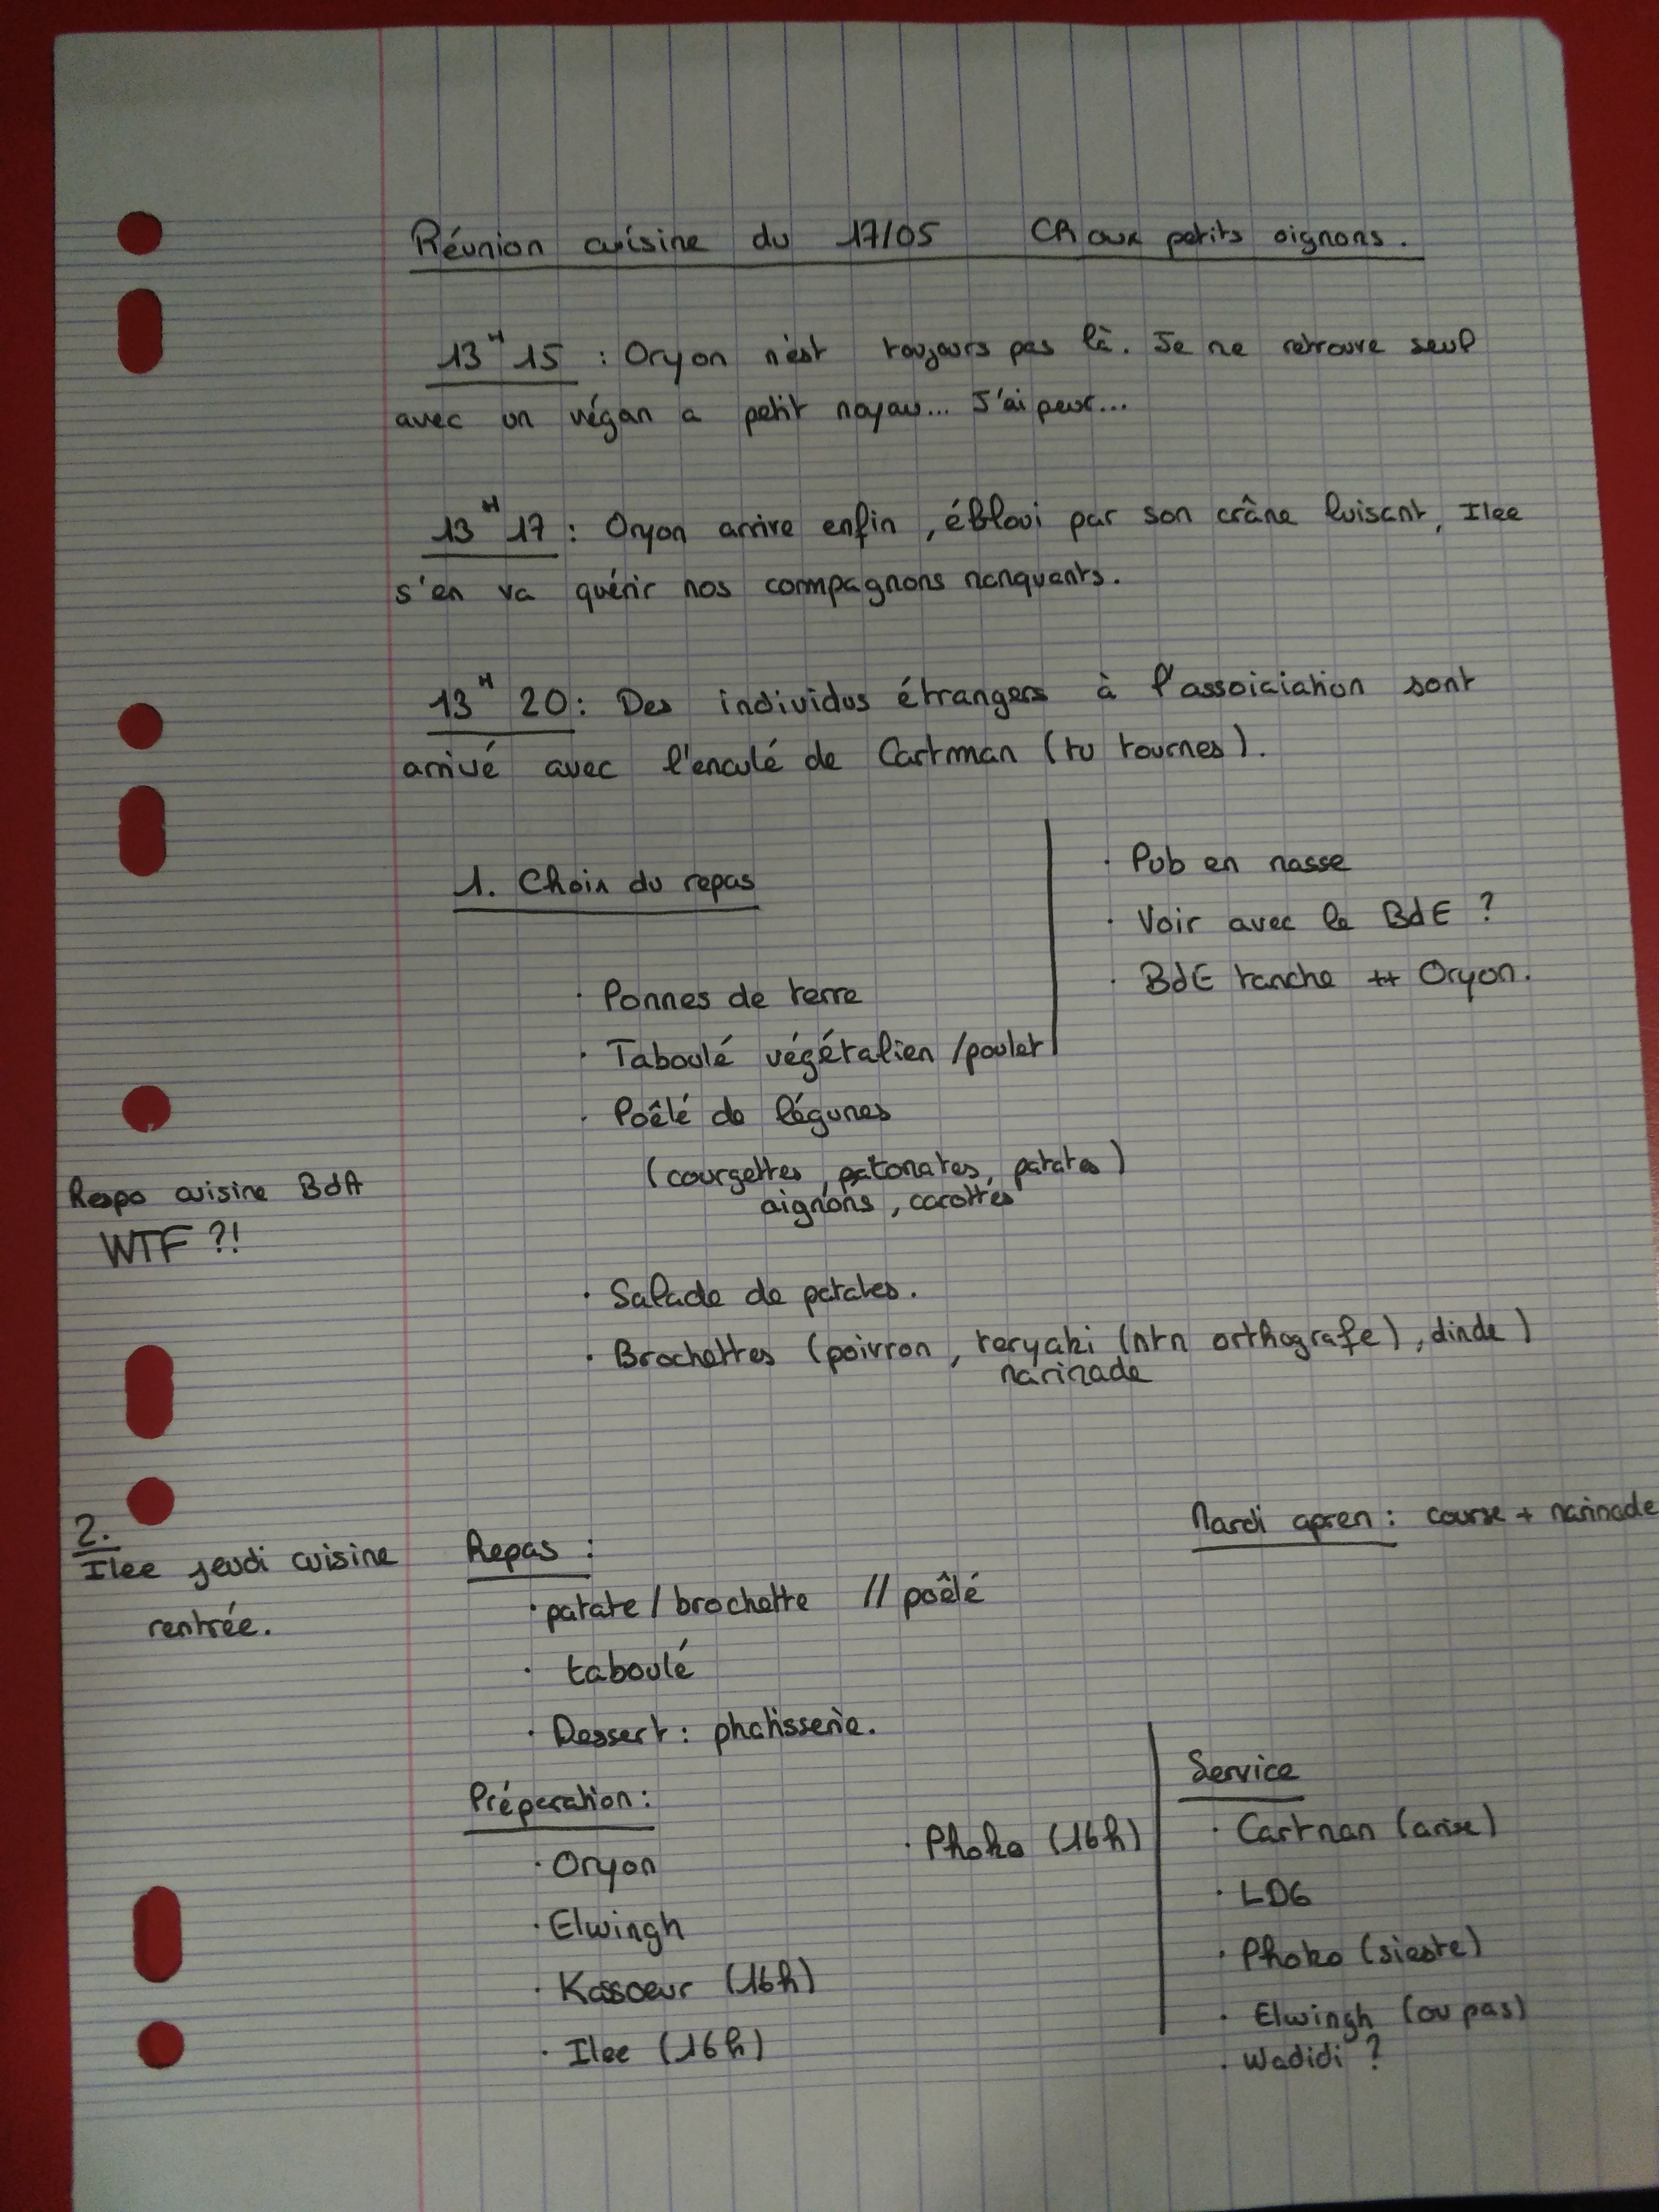 Réunion cuisine du 17/05 CR aux petits oignons.
13H15 : Oryon n'est toujours pas là. Je me retrouve seul
avec un végan a petit noyau... J'ai peur...
13H17 : Oryon arrive enfin, ébloui par son crâne luisant, Ilee
s'en va quérir nos compagnons manquants.
13H20 : Des individus étrangers à l'assoiciation sont
arrivé avec l'enculé de Cartman (tu tournes).
1. Choix du repas
· Pommes de terre
· Taboulé végétalien /poulet
· Poêlé de légumes
(courgettes, tomates, patates)
oignons, carottes
· Salade de patates.
· Brochettes (poivron, teryaki (mtn orthografe), dinde)
marinade
· Pub en masse
· Voir avec le BdE ?
· BdE tranche ++ Oryon.
Respo cuisine BdA
WTF ?!
2.
Ilee jeudi cuisine
rentrée.
Mardi aprem : course + marinade
Repas :
· patate / brochette // poêlé
· taboulé
· Dessert : phatisserie.
Préparation :
· Oryon
· Elwingh
· Kassoeur (16h)
· Ilee (16h)
· Phoko (16h)
Service
· Cartman (arise)
· LDG
· Phoko (sieste)
· Elwingh (ou pas)
· Wadidi ?